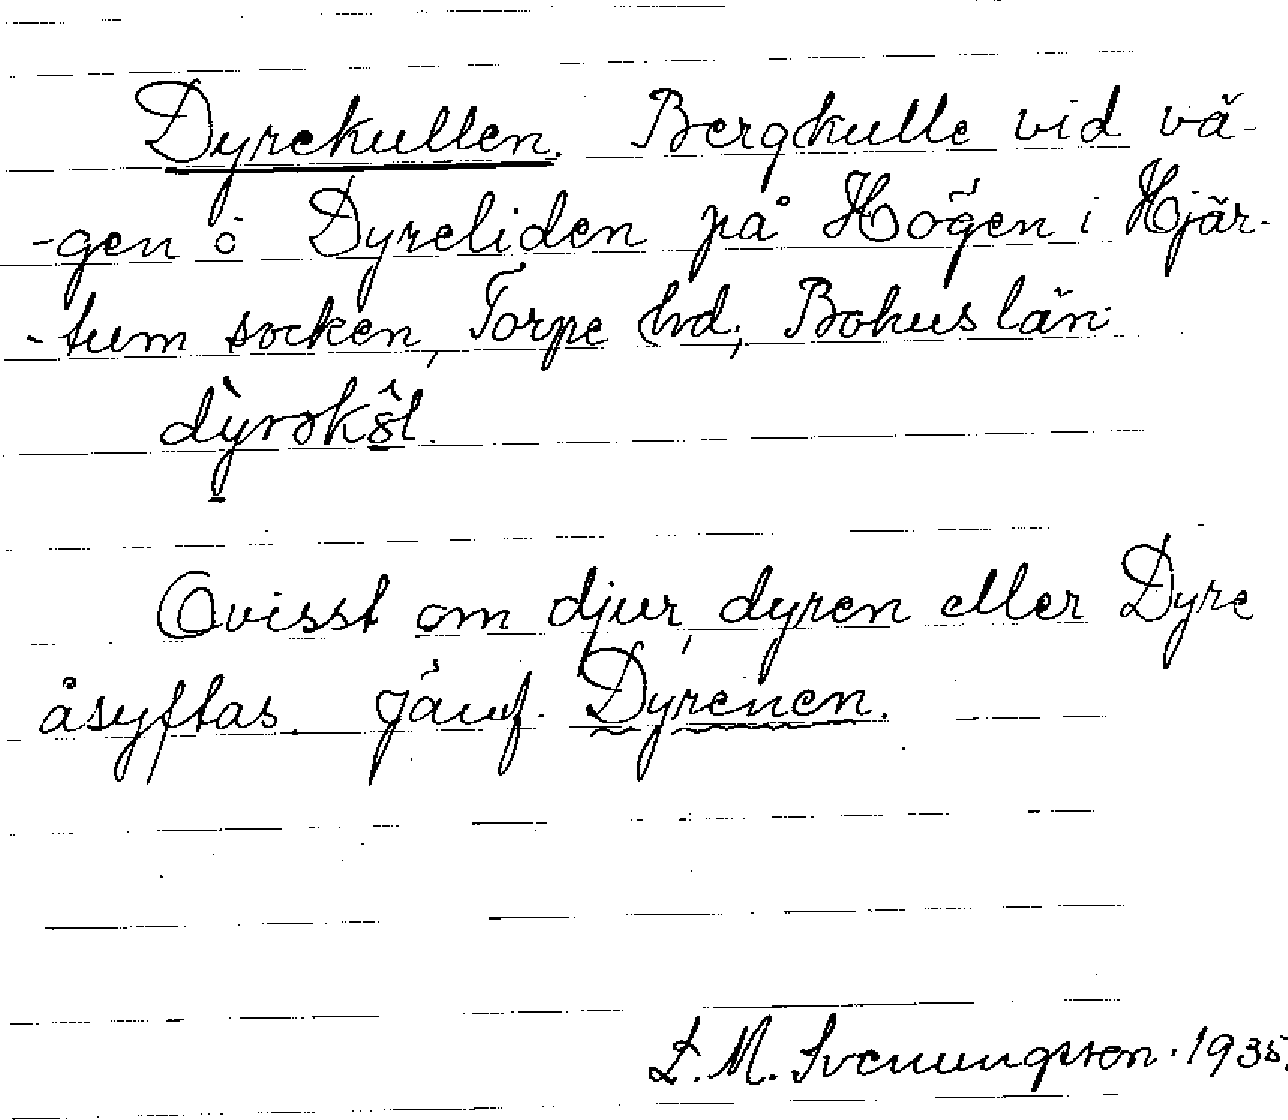 Dyrekullen. Bergkulle vid vä-
-gen ö Dyreliden på Högen i Hjär-
-tum socken, Torpe hd; Bohuslän.
dỳ̠rək8̠̂l.
Ovisst om djur, dyren eller Dyre
åsyftas. Jämf. Dyrenen.
L. M. Svenungsson. 1935.